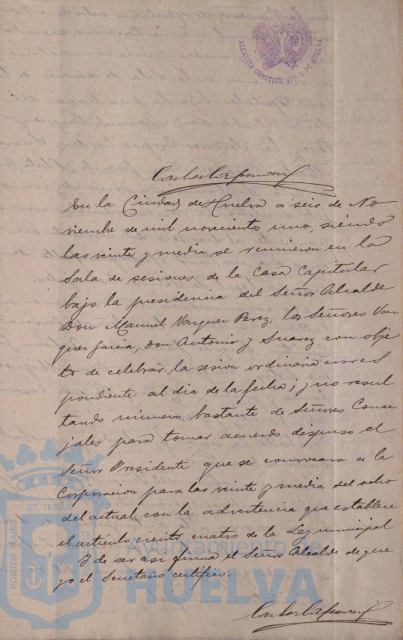 ALCALDIA CONSTITUCIONAL DE HUELVA
En la Ciudad de Huelva a seis de No
viembre de mil novecientos uno, siendo
las veinte y media se reunieron en la
Sala de sesiones de la Casa Capitular
bajo la presidencia del Señor Alcalde
Don Manuel Vazquez Perez, los Señores Vaz
quez Garcia, Don Antonio y Suarez con obje
to de celebrar la sesion ordinaria corres
pondiente al dia de la fecha; y no resul
tando número bastante de Señores Conce
jales para tomar acuerdo dispuso el
Señor Presidente que se convocara a la
Corporacion para las veinte y media del ocho
del actual con la advertencia que establece
el articulo ciento cuatro de la Ley municipal
Y de ser asi firma el Señor Alcalde de que
yo el Secretario certifico.
PORTUS MARIS ET TERRAE
Ayuntamiento de
HUELVA